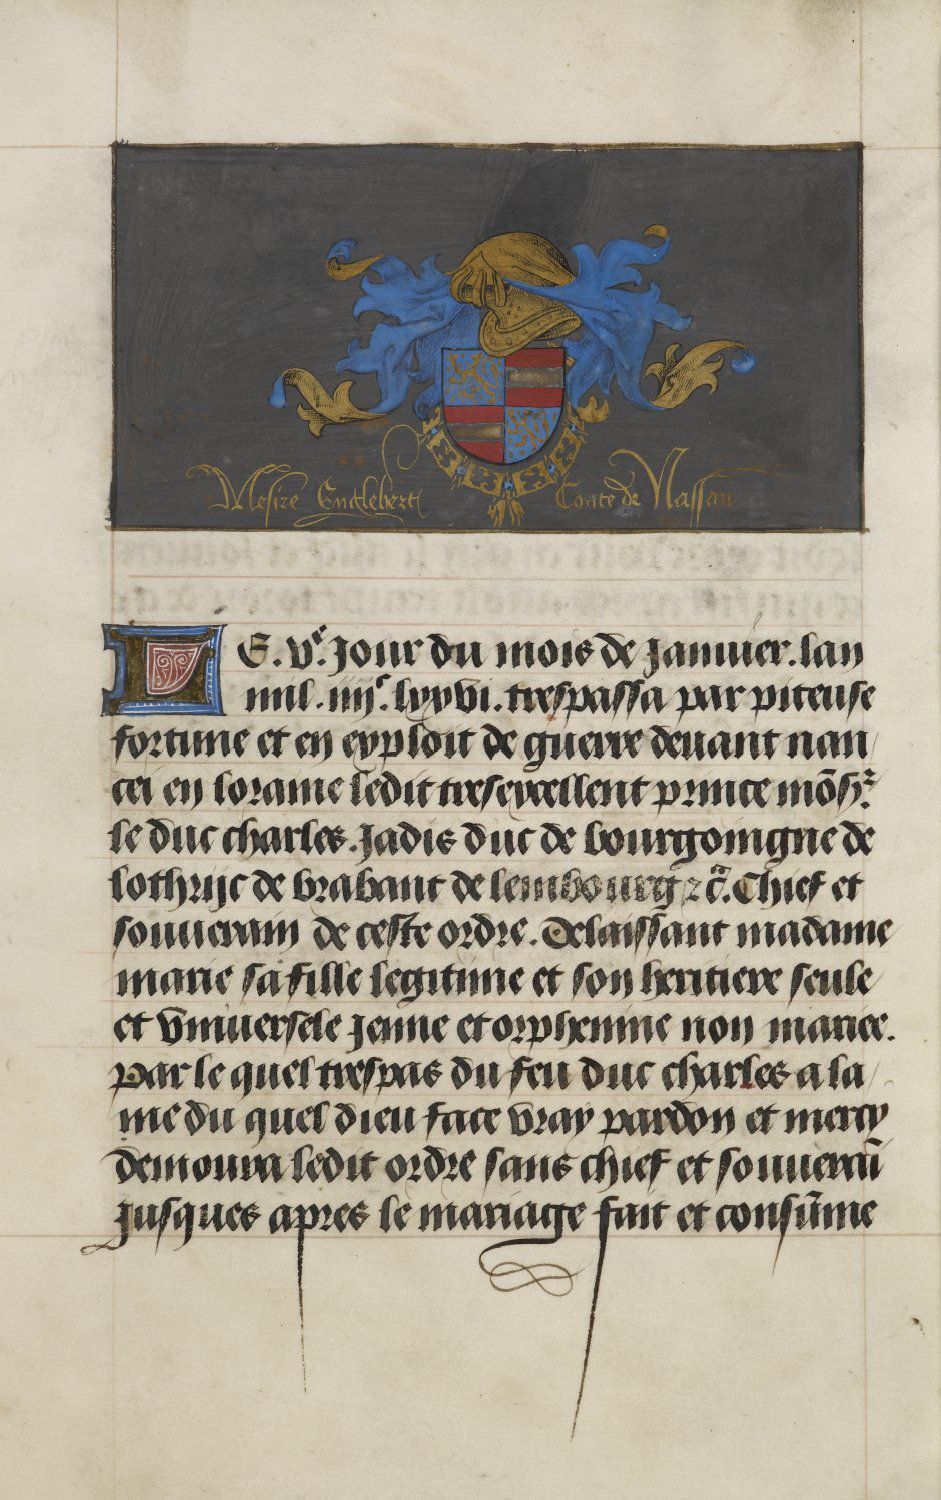 Mesire Englebert Conte de Nassau
LE .vᵉ. Jour du mois de Januier. lan
mil .iiijᶜ. lxxvi. trespassa par piteuse
fortune et en exploit de guerre deuant nan
cei en loraine ledit tresexcellent prince mōsʳ.
le duc charles. Jadis duc de bourgoingne de
lothrijc de brabant de lembourg ⁊ cᵃ. Chief et
souuerain de ceste ordre. Delaissant madame
marie sa fille legitime et son heritiere seule
et vniuersele Jenne et orphenine non mariee.
Par le quel trespas du feu duc charles a la
me du quel dieu face vray pardon et mercy
demoura ledit ordre sans chief et souueraī
Jusques apres le mariage fait et consūme